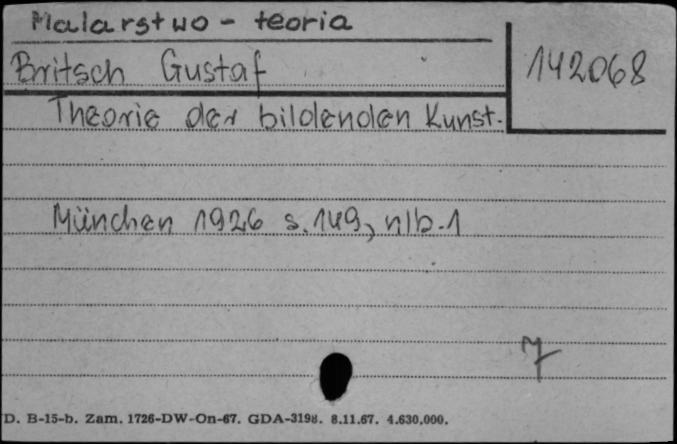 Malarstwo - teoria
Britsch Gustaf
142068
Theorie der bildenden Kunst.
München 1926 s. 149, nlb. 1
7
D. B-15-b. Zam. 1726-DW-On-67. GDA-3198. 8.11.67. 4.630,000.